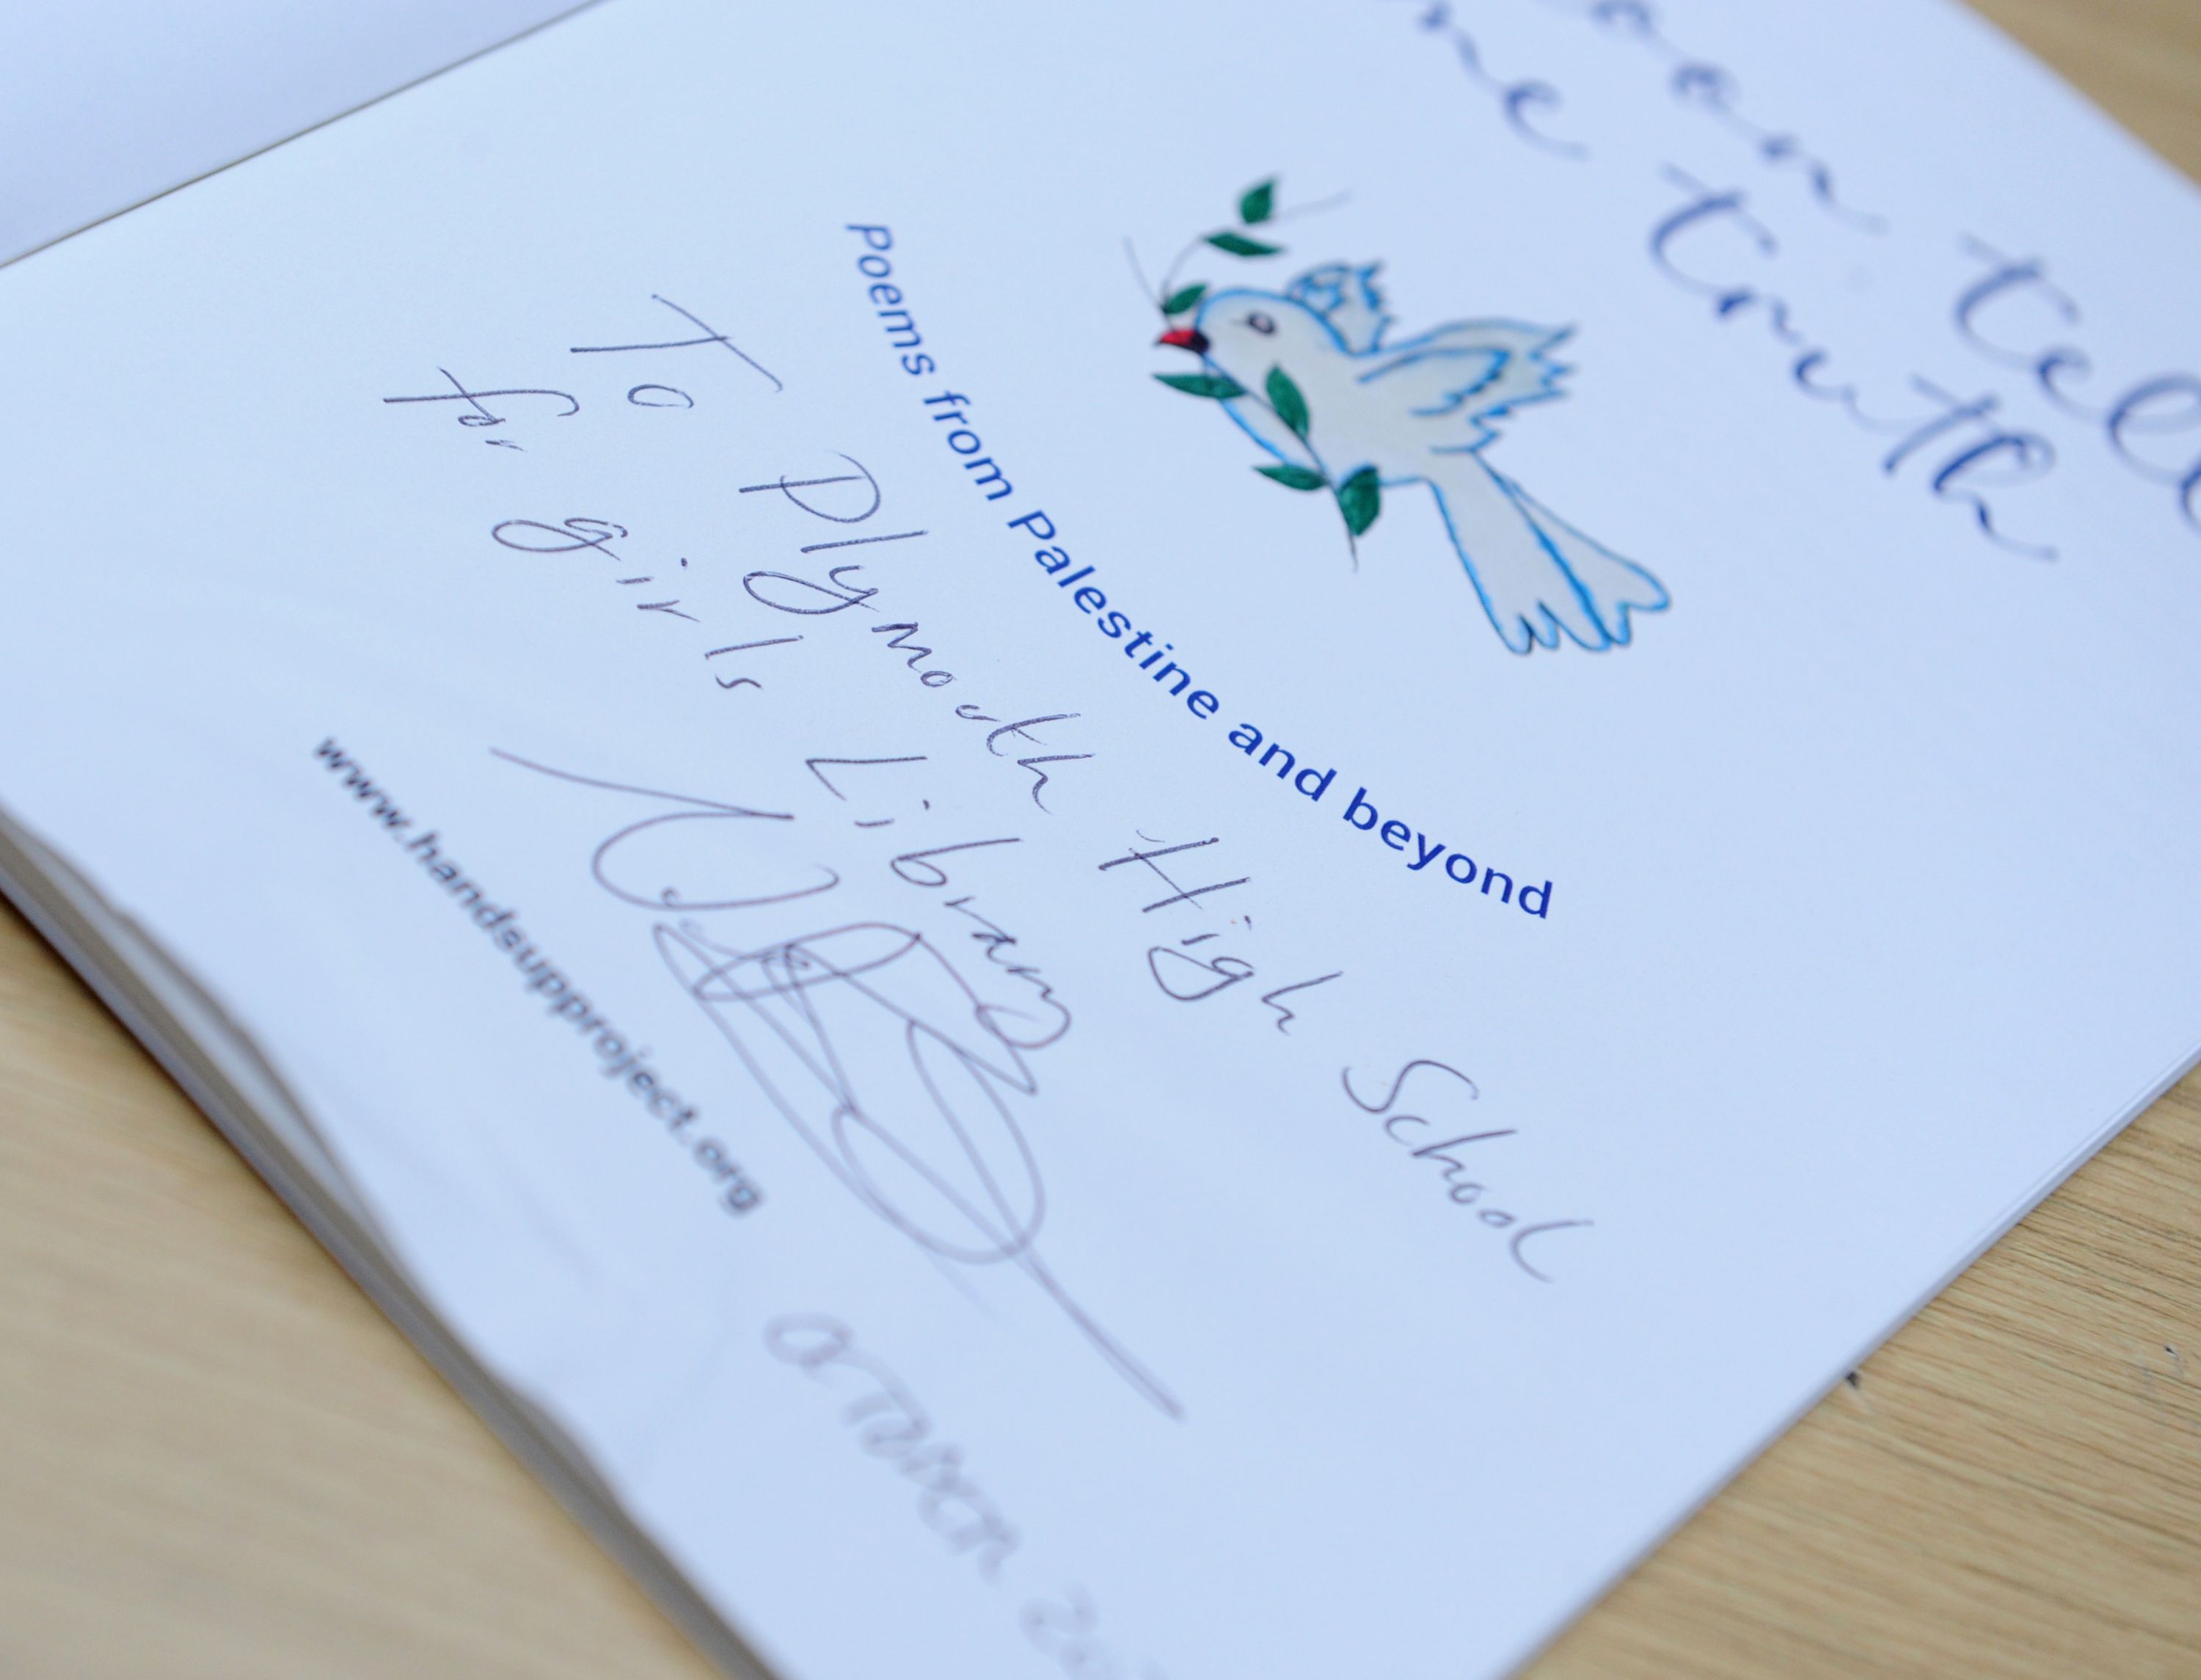 tell
the truth
Poems from Palestine and beyond
To Plymouth High School
for girls Library
www.handsupproject.org